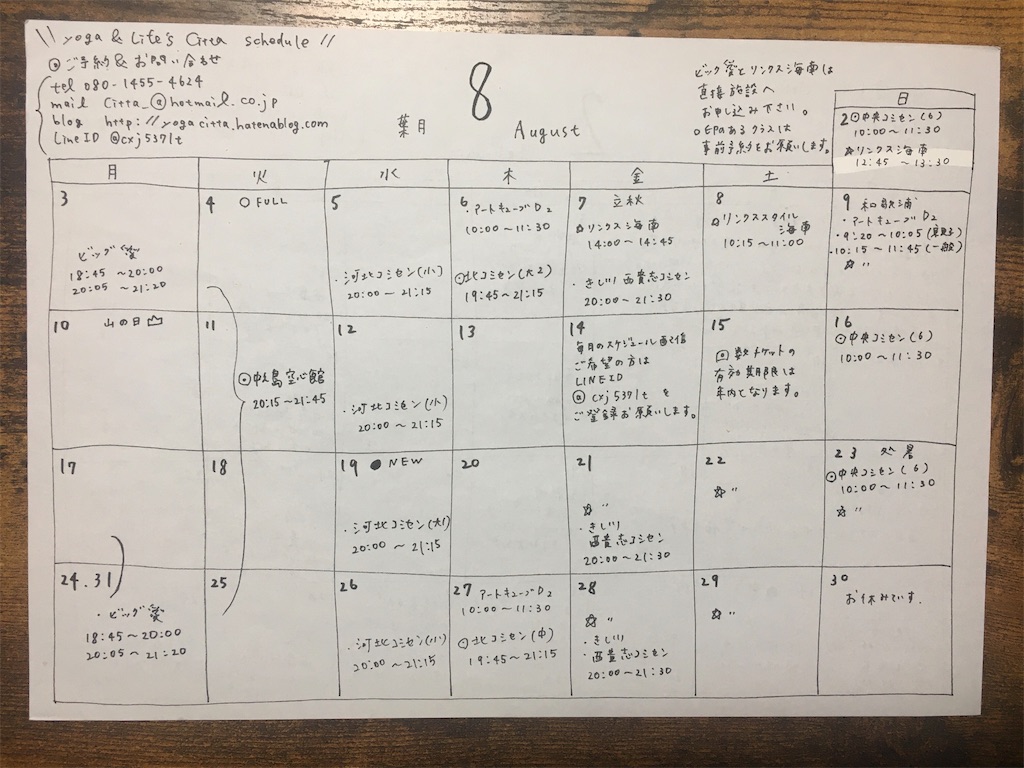 \\ yoga & Life's Citta schedule //
⦿ご予約&お問い合せ
tel 080-1455-4624
mail Citta_@hotmail.co.jp
blog http://yogacitta.hatenablog.com
Line ID @cxj5371t
8
葉月 August
ビック愛とリンクス海南は
直接施設へ
お申し込み下さい。
○印のあるクラスは
事前予約をお願いします。
日
2 ⦿中央コミセン(6)
10:00~11:30
☆リンクス海南
12:45 ~13:30
月 火 水 木 金 土
3
ビッグ愛
18:45 ~20:00
20:05 ~21:20
4 ○ FULL
5
・河北コミセン(小)
20:00 ~ 21:15
6 ・アートキューブD2
10:00~11:30
⦿北コミセン(大2)
19:45~21:15
7 立秋
☆リンクス海南
14:00~14:45
・きし川 西貴志コミセン
20:00~21:30
8
☆リンクススタイル
海南
10:15~11:00
9 和歌浦
・アートキューブD2
・9:20~10:05(親子)
・10:15~11:45(一般)
☆ "
10 山の日
11
⦿中之島空心館
20:15~21:45
12
・河北コミセン(小)
20:00 ~21:15
13
14
毎月のスケジュール配信
ご希望の方は
LINE ID
@ cxj5371t を
ご登録お願いします。
15
回数チケットの
有効期限は
年内となります。
16
⦿中央コミセン(6)
10:00~11:30
17
18
19 ● NEW
・河北コミセン(大1)
20:00 ~ 21:15
20
21
☆ "
・きし川
西貴志コミセン
20:00~21:30
22
☆ "
23 処暑
⦿中央コミセン(6)
10:00~11:30
☆ "
24.31
・ビッグ愛
18:45~20:00
20:05~21:20
25
26
・河北コミセン(小)
20:00~21:15
27 アートキューブD2
10:00~11:30
⦿北コミセン(中)
19:45~21:15
28
☆ "
・きし川
・西貴志コミセン
20:00~21:30
29
☆ "
30
お休みです.